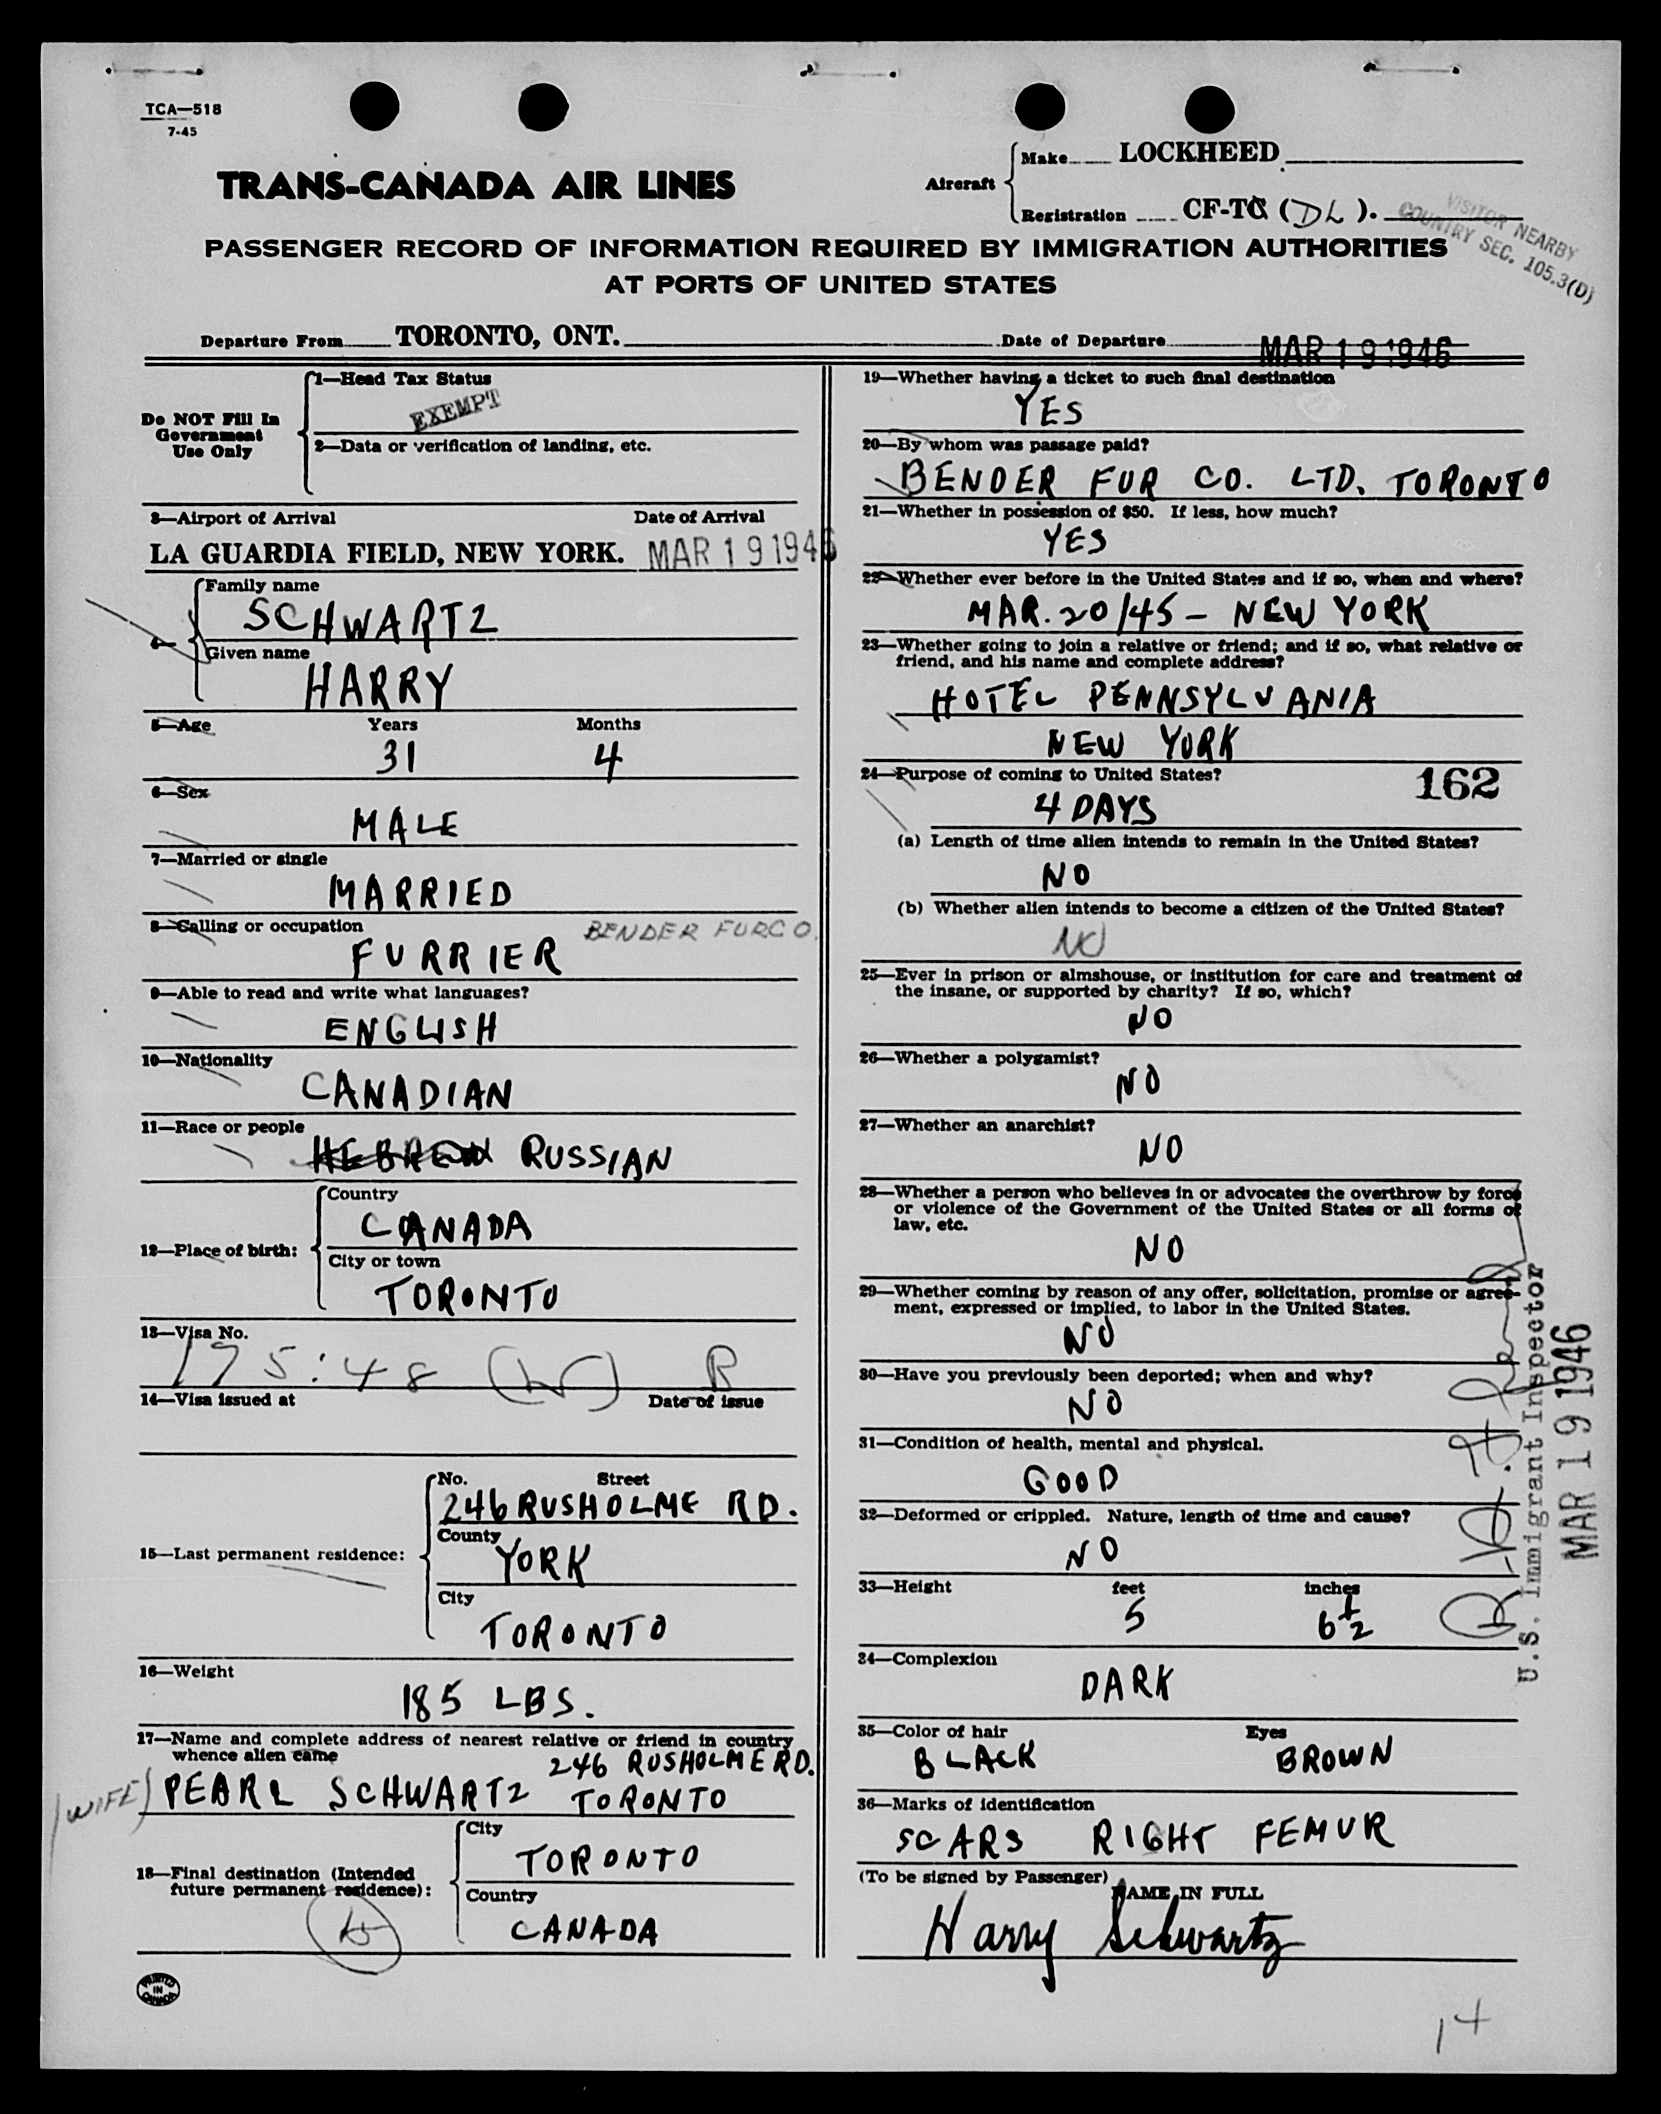 TCA—518
7-45
TRANS-CANADA AIR LINES
Aircraft
Make LOCKHEED
Registration CF-TC (DL).
VISITOR NEARBY
COUNTRY SEC. 105.3(D)
PASSENGER RECORD OF INFORMATION REQUIRED BY IMMIGRATION AUTHORITIES
AT PORTS OF UNITED STATES
Departure From TORONTO, ONT. Date of Departure MAR 19 1946
Do NOT Fill In
Government
Use Only
1—Head Tax Status
EXEMPT
2—Data or verification of landing, etc.
3—Airport of Arrival Date of Arrival
LA GUARDIA FIELD, NEW YORK. MAR 19 1946
4—
Family name
SCHWARTZ
Given name
HARRY
5—Age Years Months
31 4
6—Sex
MALE
7—Married or single
MARRIED
8—Calling or occupation BENDER FUR CO.
FURRIER
9—Able to read and write what languages?
ENGLISH
10—Nationality
CANADIAN
11—Race or people
HEBREW RUSSIAN
12—Place of birth:
Country
CANADA
City or town
TORONTO
13—Visa No.
175:48 (W) B
14—Visa issued at Date of issue
15—Last permanent residence:
No. Street
246 RUSHOLME RD.
County
YORK
City
TORONTO
16—Weight
185 LBS.
17—Name and complete address of nearest relative or friend in country
whence alien came 246 RUSHOLME RD.
(WIFE) PEARL SCHWARTZ TORONTO
18—Final destination (Intended
future permanent residence):
City
TORONTO
Country
CANADA
PRINTED
IN
CANADA
19—Whether having a ticket to such final destination
YES
20—By whom was passage paid?
BENDER FUR CO. LTD. TORONTO
21—Whether in possession of $50. If less, how much?
YES
22—Whether ever before in the United States and if so, when and where?
MAR. 20/45 – NEW YORK
23—Whether going to join a relative or friend; and if so, what relative or
friend, and his name and complete address?
HOTEL PENNSYLVANIA
NEW YORK
24—Purpose of coming to United States? 162
4 DAYS
(a) Length of time alien intends to remain in the United States?
NO
(b) Whether alien intends to become a citizen of the United States?
NO
25—Ever in prison or almshouse, or institution for care and treatment of
the insane, or supported by charity? If so, which?
NO
26—Whether a polygamist?
NO
27—Whether an anarchist?
NO
28—Whether a person who believes in or advocates the overthrow by force
or violence of the Government of the United States or all forms of
law, etc.
NO
29—Whether coming by reason of any offer, solicitation, promise or agree-
ment, expressed or implied, to labor in the United States.
NO
30—Have you previously been deported; when and why?
NO
31—Condition of health, mental and physical.
GOOD
32—Deformed or crippled. Nature, length of time and cause?
NO
33—Height feet inches
5 6 1/2
34—Complexion
DARK
35—Color of hair Eyes
BLACK BROWN
36—Marks of identification
SCARS RIGHT FEMUR
(To be signed by Passenger)
NAME IN FULL
Harry Schwartz
U.S. Immigrant Inspector
MAR 19 1946
14